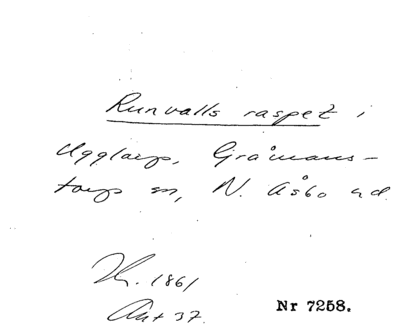 Runvalls raspet i
Ugglarp, Gråmans-
torps sn, N. Åsbo hd.
1861
Ant 37.
Nr 7258.